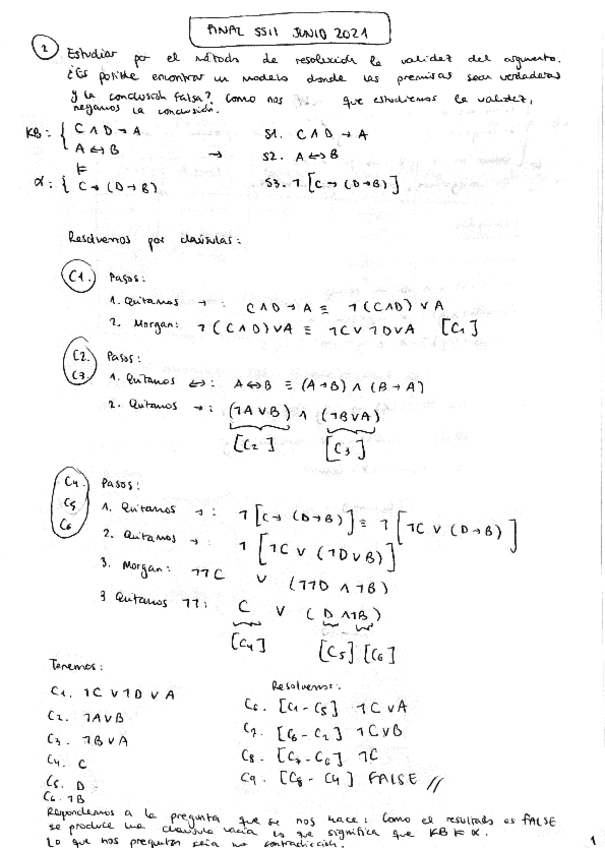 FINAL SSII JUNIO 2021
2 Estudiar por el método de resolución la validez del argumento.
¿Es posible encontrar un modelo donde las premisas sean verdaderas
y la conclusión falsa? Como nos que estudiemos la validez,
negamos la conclusión.
KB: { C ∧ D → A S1. C ∧ D → A
A ↔ B → S2. A ↔ B
⊨
α: { C → (D → B) S3. ¬[C → (D → B)]
Resolvemos por cláusulas:
C1. Pasos:
1. Quitamos → : C ∧ D → A ≡ ¬(C ∧ D) ∨ A
2. Morgan: ¬(C ∧ D) ∨ A ≡ ¬C ∨ ¬D ∨ A [C1]
C2. Pasos:
C3. 1. Quitamos ↔: A ↔ B ≡ (A → B) ∧ (B → A)
2. Quitamos → : (¬A ∨ B) ∧ (¬B ∨ A)
[C2] [C3]
C4. Pasos:
C5 1. Quitamos → : ¬[C → (D → B)] ≡ ¬[¬C ∨ (D → B)]
C6 2. Quitamos → : ¬[¬C ∨ (¬D ∨ B)]
3. Morgan: ¬¬C ∨ (¬¬D ∧ ¬B)
3 Quitamos ¬¬: C ∨ (D ∧ ¬B)
[C4] [C5] [C6]
Tenemos: Resolvemos:
C1. ¬C ∨ ¬D ∨ A C6. [C1 - C5] ¬C ∨ A
C2. ¬A ∨ B C7. [C6 - C2] ¬C ∨ B
C3. ¬B ∨ A C8. [C7 - C6] ¬C
C4. C C9. [C8 - C4] FALSE //
C5. D
C6. ¬B
Respondemos a la pregunta que se nos hace: Como el resultado es FALSE
se produce una cláusula vacía lo que significa que KB ⊨ α.
Lo que nos preguntan sería una contradicción.
1